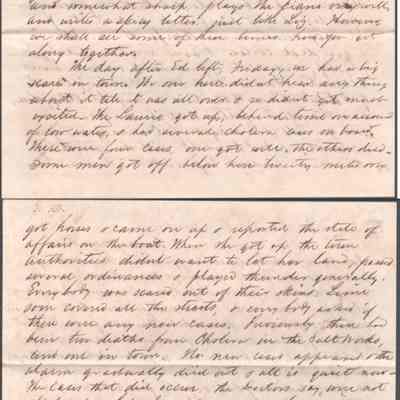 and somewhat sharp, plays the piano very well,
and writes a spicy letter, just like Liz. However
we shall see some of these times how you get
along together.
The day after Ed left, Friday, we had a big
scare in town. We over here didn't hear any thing
about it till it was all over & so didnt get much
excited. The Laurie got up, behind time on account
of low water, & had several cholera cases on board.
There were four cases, one got well, the others died.
Some men got off below here twenty miles or so
got horses & came on up & reported the state of
affairs on the boat. When she got up the town
authorities didnt want to let her land, passed
several ordinances & played thunder generally.
Every body was scared out of their skins. Lime
soon covered all the streets, & every body asked if
there were any new cases. Previously there had
been two deaths from cholera in the Salt Works,
and one in town. No new cases appeared & the
alarm gradually died out & all is quiet now.
The cases that did occur, the Doctors say, were not